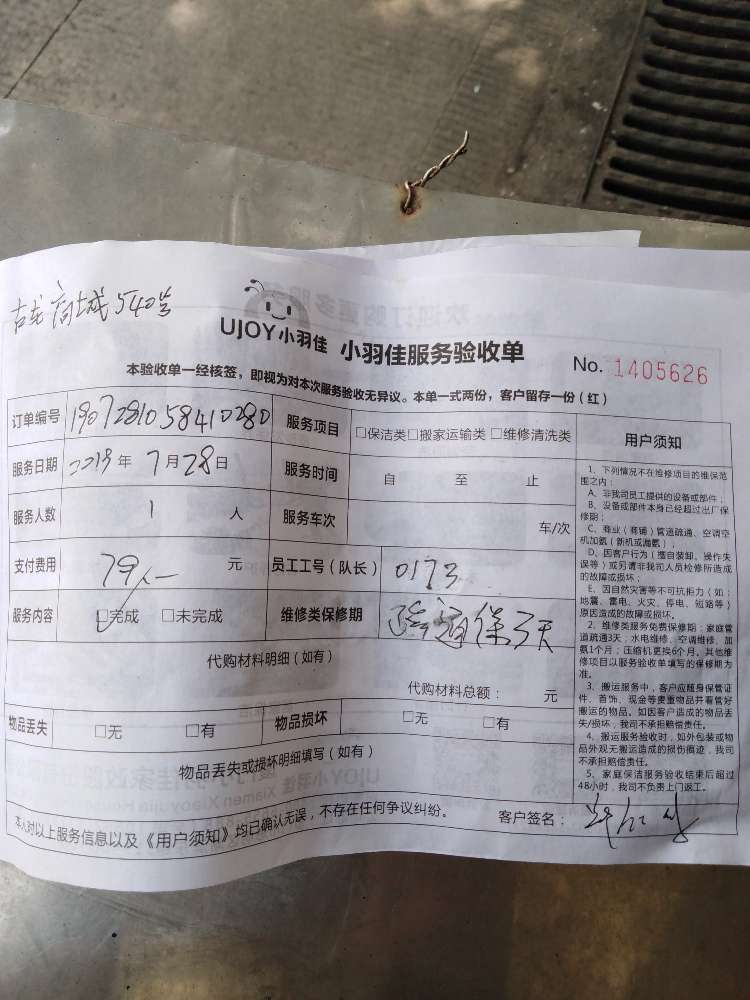 古龙商城540号
UJOY小羽佳 小羽佳服务验收单
No. 1405626
本验收单一经核签，即视为对本次服务验收无异议。本单一式两份，客户留存一份（红）
订单编号 1907281058410280 服务项目 □保洁类□搬家运输类□维修清洗类
服务日期 2019年7月28日 服务时间 自 至 止
服务人数 1 人 服务车次 车/次
支付费用 79 元 员工工号（队长） 0173
服务内容 □完成 □未完成 维修类保修期 疏通保3天
代购材料明细（如有）
代购材料总额： 元
物品丢失 □无 □有 物品损坏 □无 □有
物品丢失或损坏明细填写（如有）
本人对以上服务信息以及《用户须知》均已确认无误，不存在任何争议纠纷。 客户签名：
用户须知
1、下列情况不在维修项目的维保范
围之内：
A、非我司员工提供的设备或部件；
B、设备或部件本身已经超过出厂保
修期；
C、商业（商铺）管道疏通、空调空
机加氨（新机或漏氨）；
D、因客户行为（擅自装卸、操作失
误等）或另请非我司人员检修所造成
的故障或损坏；
E、因自然灾害等不可抗力（如：
地震、雷电、火灾、停电、短路等）
原因造成的故障或损坏。
2、维修类服务免费保修期：家庭管
道疏通3天；水电维修、空调维修、加
氨1个月；压缩机更换6个月，其他维
修项目以服务验收单填写的保修期为
准。
3、搬运服务中，客户应随身保管证
件、首饰、现金等贵重物品并看管好
搬运的物品。如因客户造成的物品丢
失/损坏，我司不承担赔偿责任。
4、搬运服务验收时，如外包装或物
品外观无搬运造成的损伤痕迹，我司
不承担赔偿责任。
5、家庭保洁服务验收结束后超过
48小时，我司不负责上门返工。